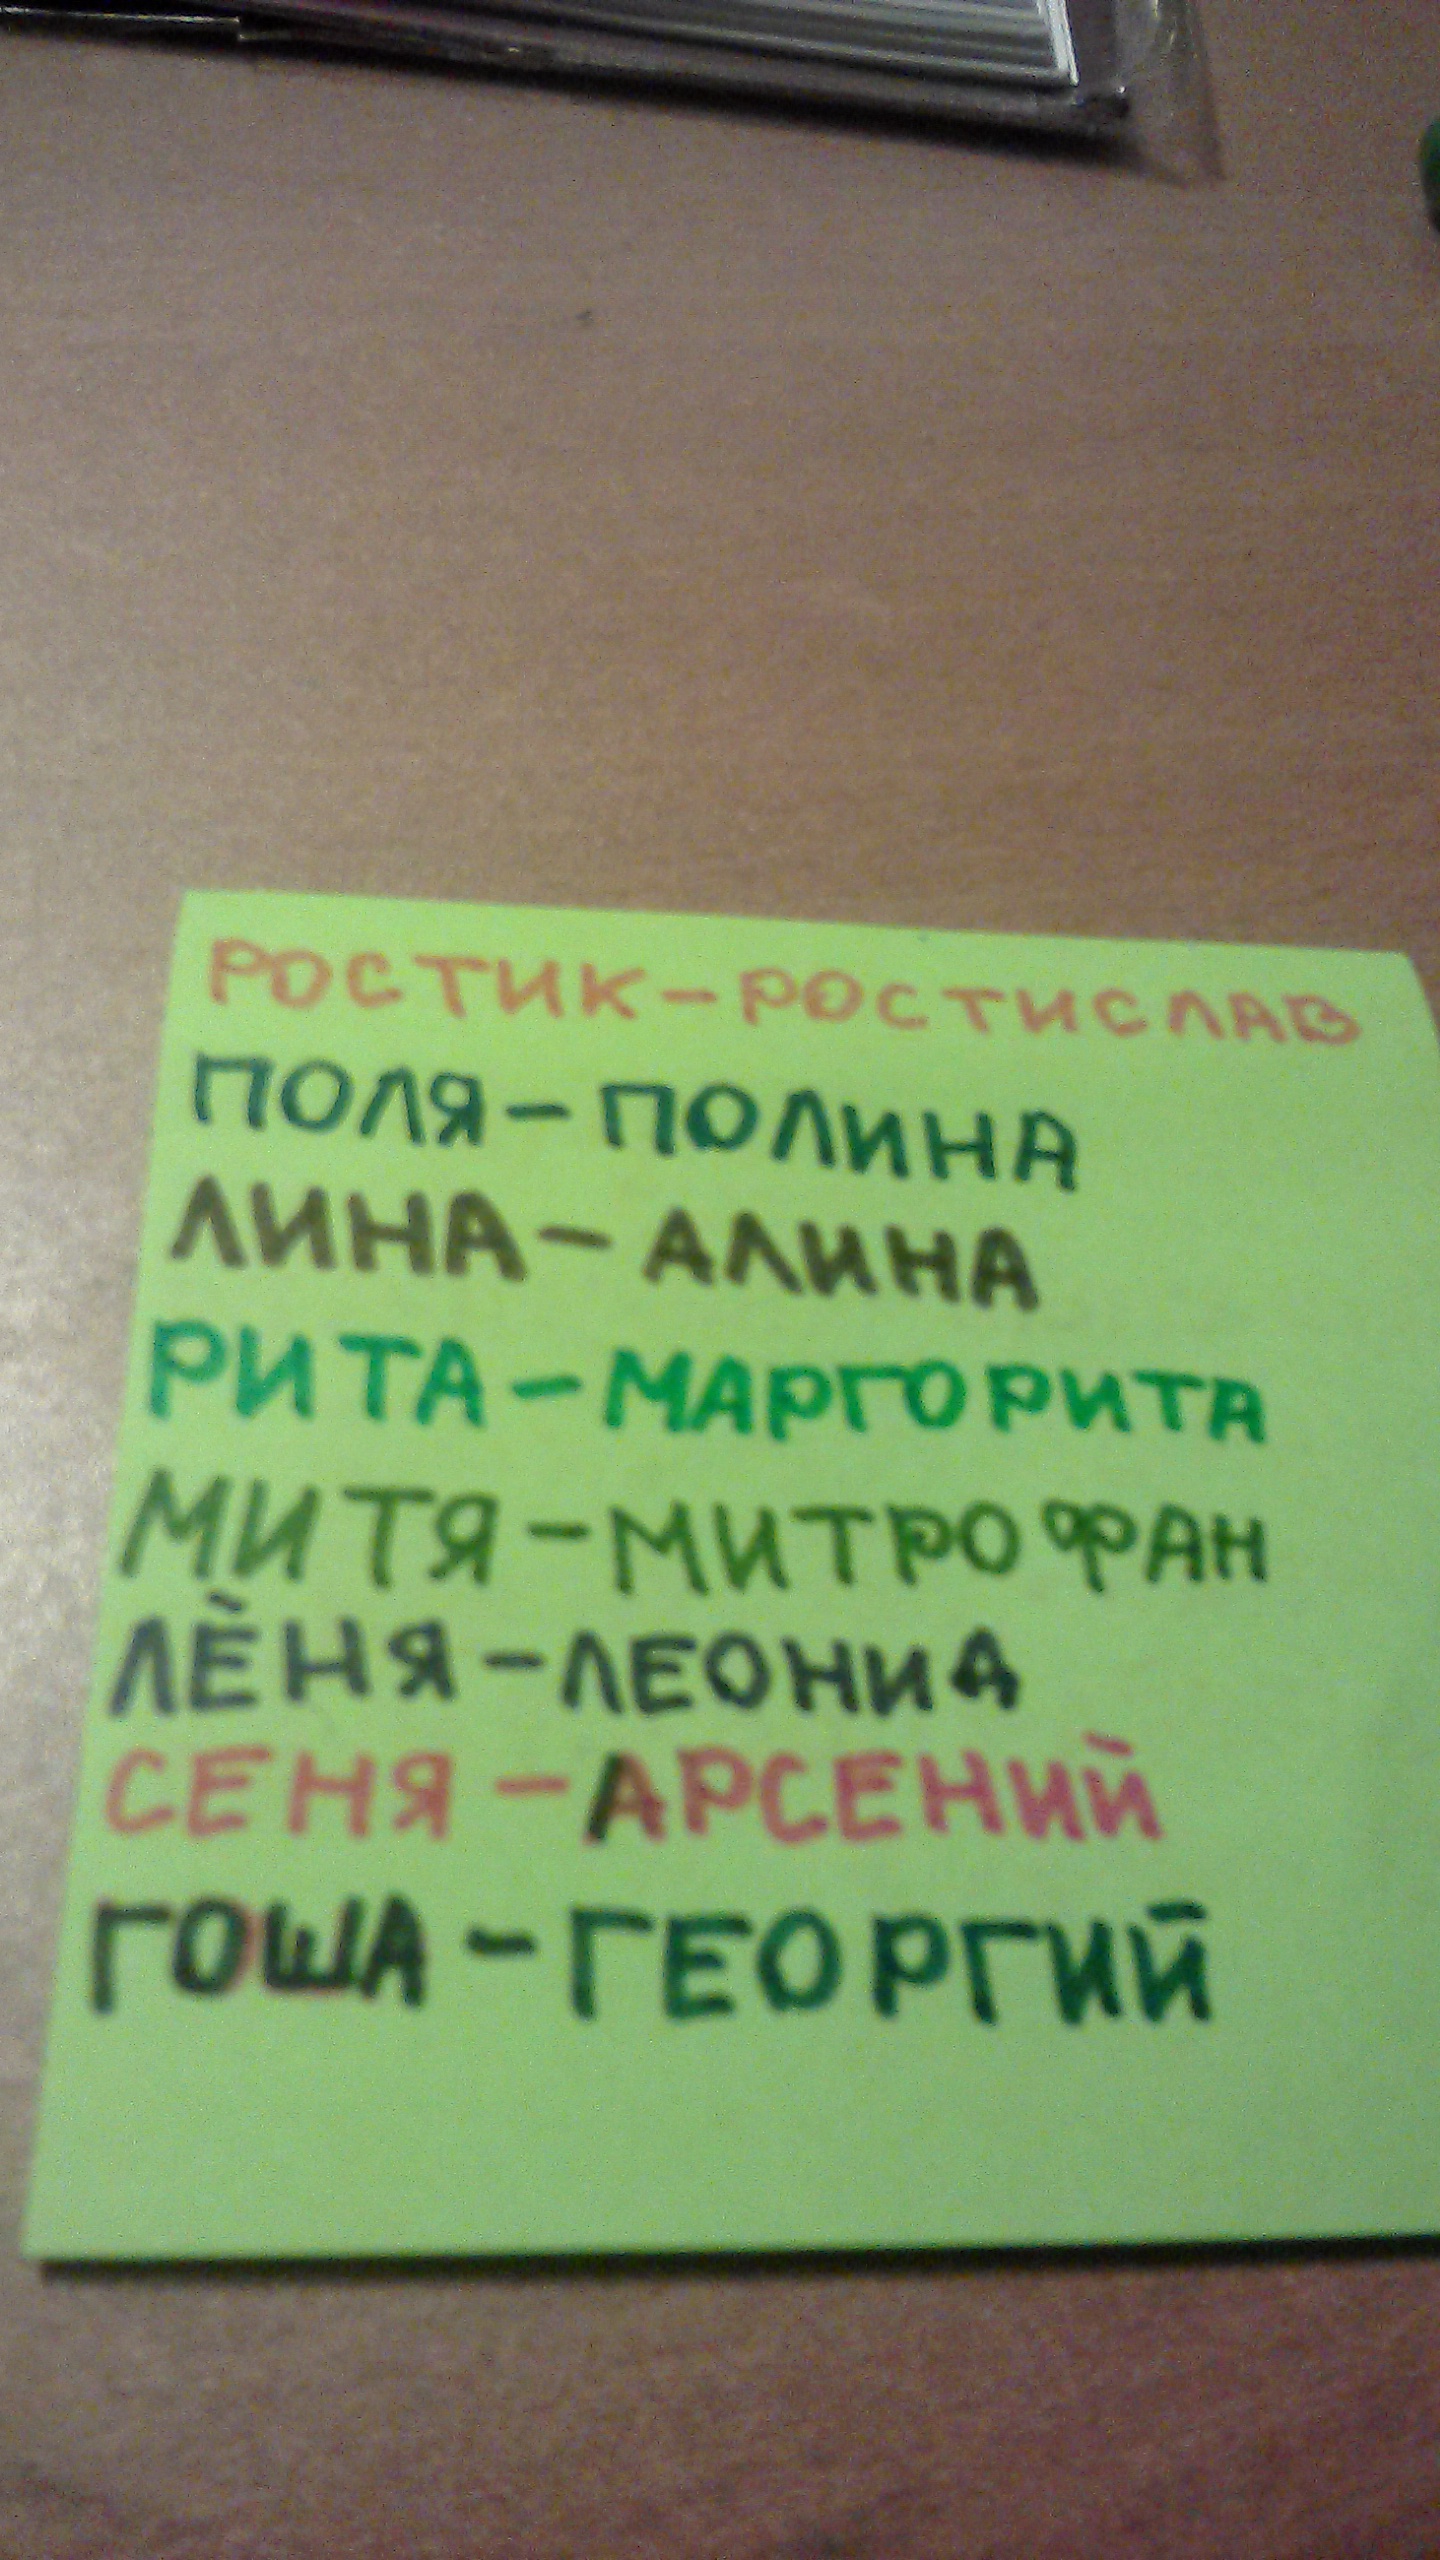 РОСТИК-РОСТИСЛАВ
ПОЛЯ-ПОЛИНА
ЛИНА-АЛИНА
РИТА-МАРГОРИТА
МИТЯ-МИТРОФАН
ЛЁНЯ-ЛЕОНИД
СЕНЯ-АРСЕНИЙ
ГОША-ГЕОРГИЙ